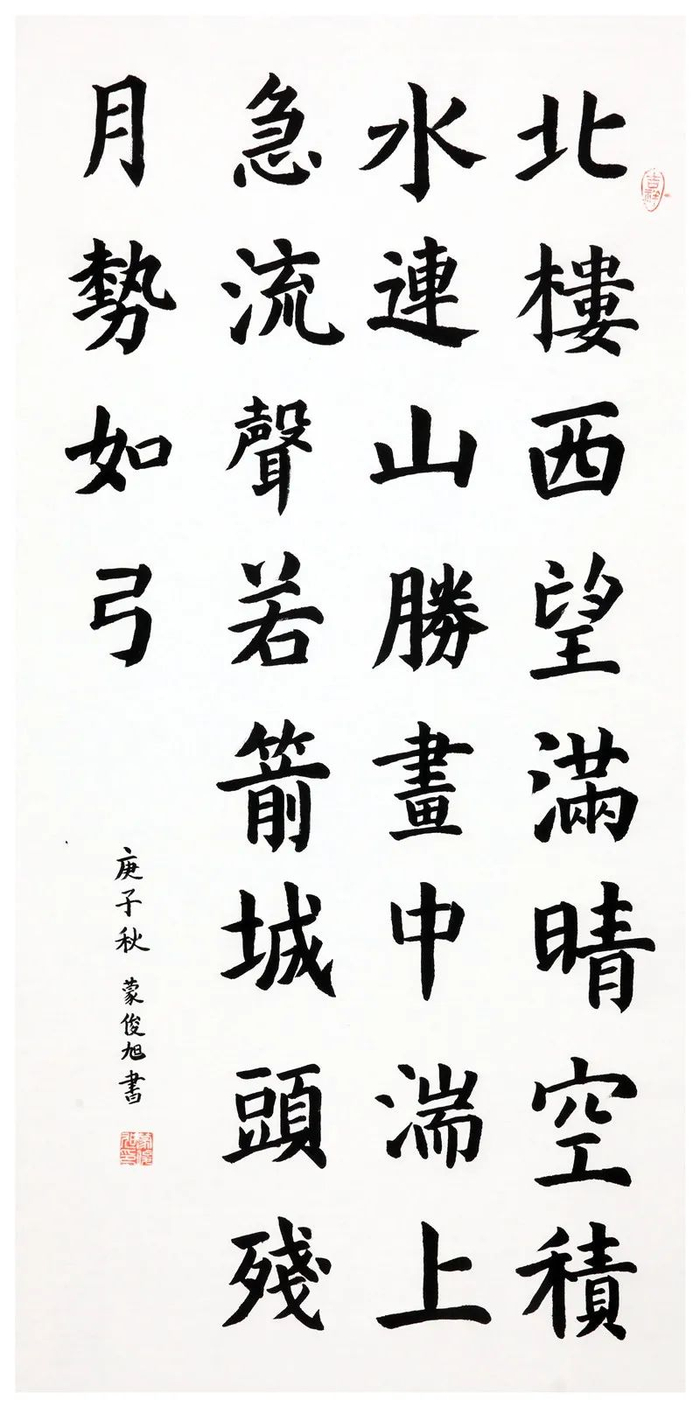 北樓西望滿晴空積
水連山勝畫中湍上
急流聲若箭城頭殘
月勢如弓
庚子秋 蒙俊旭書